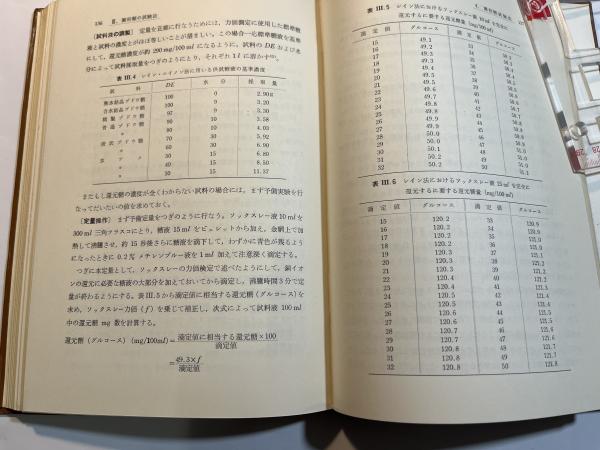 136 II. 糖質類の試験法
〔試料液の調製〕 定量を正確に行なうためには，力価測定に使用した標準糖
液と試料の濃度とがほぼ等しいことが望ましい。この場合
にして，還元糖濃度が約 290 mg/100 ml になるように，試料の DE および水
分によって試料採取量をつぎのようにとり，それぞれ 1l に溶かす
表 III.4 レイン・エイノン法に用いる供試糖液の基準濃度
試 料 DE 水 分 採 取 量
無水結晶ブドウ糖 100 0 2.90g
含水結晶ブドウ糖 100 9 3.20
精製ブドウ糖 97 9 3.30
普通ブドウ糖 90 10 3.58
〃 80 10 4.03
液状ブドウ糖 70 30 5.92
〃 60 30 6.90
水アメ 50 15 6.80
〃 40 15 8.50
〃 30 15 11.37
またもし還元糖の濃度が全くわからない試料の場合には，まず予備実験を行
なってだいたいの値を求めておく。
〔定量操作〕 まず予備定量をつぎのように行なう。ソックスレー液 10 ml を
300 ml 三角フラスコにとり，糖液 15 ml をビュレットから加え，金網上で加
熱して沸騰させ，約 15 秒後さらに糖液を滴下して，わずかに青色が残るよう
になったときに 0.2% メチレンブルー液を 1 ml 加えて注意深く滴定する。
つぎに本定量として，ソックスレーの力価検定で述べたようにして，銅イオ
ンの還元に必要な糖液の大部分を加えておいてから滴定し，沸騰時間 3 分で定
量が終わるようにする。表 III.5 から滴定値に相当する還元糖 (グルコース) を
求め，ソックスレー力価 (f) を乗じて補正し，次式によって試料液 100 ml
中の還元糖 mg 数を計算する。
還元糖 (グルコース) (mg/100ml)=滴定値に相当する還元糖×100
滴定値
=49.3×f
滴定値
表 III.5 レイン法におけるソックスレー液
還元するに要する還元糖量 (mg/100 ml)
滴 定 値 グルコース 滴 定 値 グルコース
15 49.1 33
16 49.2 34
17 49.3 35
18 49.3 36
19 49.4 37
20 49.5 38
21 49.5 39
22 49.6 40
23 49.7 41
24 49.8 42
25 49.8 43
26 49.9 44
27 49.9 45
28 50.0 46
29 50.0 47
30 50.1 48
31 50.2 49
32 50.2 50
表 III.6 レイン法におけるソックスレー液 25 ml を完全に
還元するに要する還元糖量 (mg/100 ml)
滴 定 値 グルコース 滴 定 値 グルコース
15 120.2 33 120.9
16 120.2 34
17 120.2 35
18 120.2 36
19 120.3 37
20 120.3 38
21 120.3 39
22 120.4 40
23 120.4 41
24 120.5 42
25 120.5 43 121.4
26 120.6 44 121.5
27 120.6 45 121.5
28 120.7 46 121.6
29 120.7 47 121.6
30 120.8 48 121.7
31 120.8 49 121.7
32 120.8 50 121.8